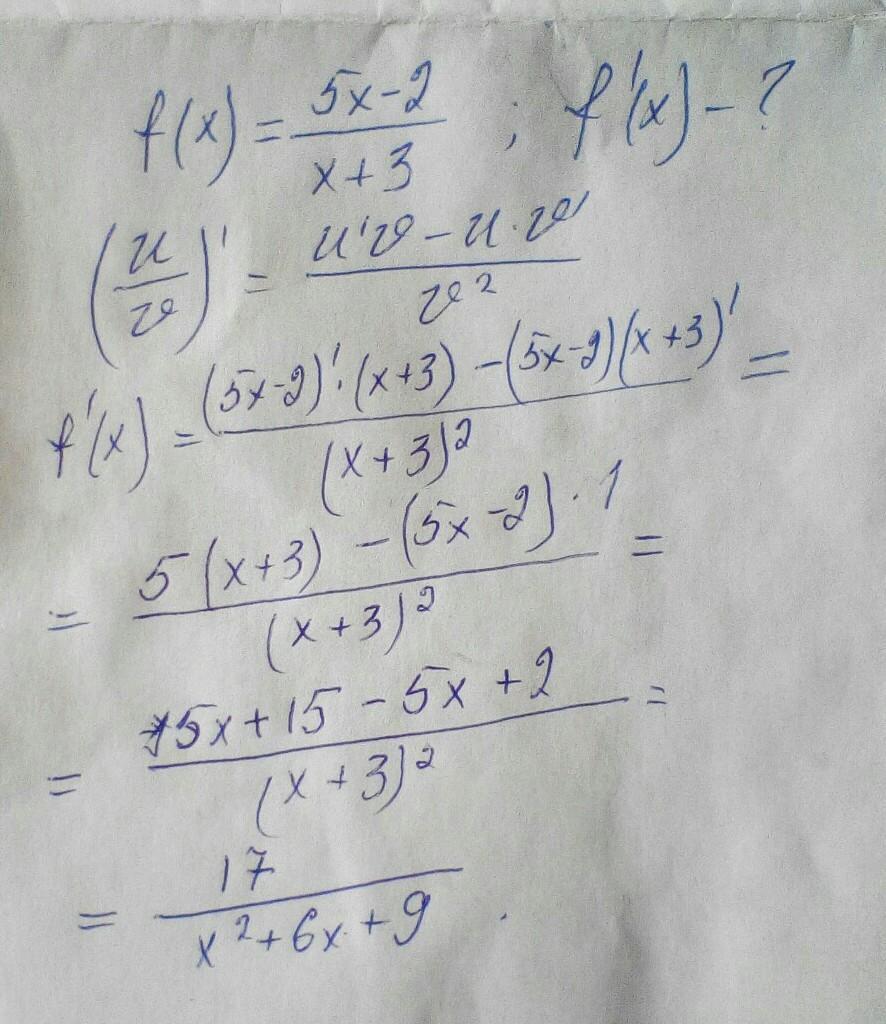 f(x) = (5x-2)/(x+3) ; f'(x) - ?
(u/v)' = (u'v - u·v')/v²
f'(x) = ((5x-2)'·(x+3) - (5x-2)(x+3)')/(x+3)² =
= (5(x+3) - (5x-2)·1)/(x+3)² =
= (5x+15-5x+2)/(x+3)² =
= 17/(x²+6x+9) .